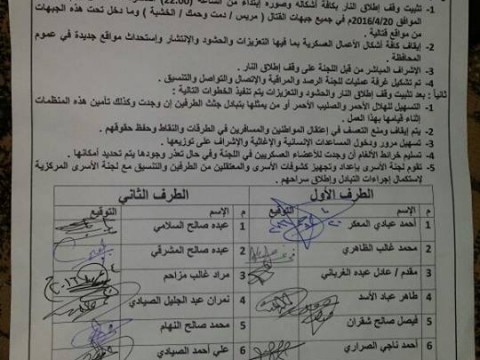 1- تثبيت وقف إطلاق النار بكافة أشكاله وصوره إبتداءً من الساعة (22.00)
الموافق 2016/4/20م في جميع جبهات القتال ( مريس / دمت وحمك / الخشبية ) وما دخل تحت هذه الجبهات
من مواقع قتالية .
2- إيقاف كافة أشكال الأعمال العسكرية بما فيها التعزيزات والحشود والانتشار وإستحداث مواقع جديدة في عموم
المحافظة .
3- الإشراف المباشر من قبل اللجنة على وقف إطلاق النار .
4- تم تشكيل غرفة عمليات للجنة الرصد والمراقبة والإتصال والتواصل والتنسيق .
ثانياً : بعد تثبيت وقف إطلاق النار والحشود والتعزيزات يتم تنفيذ الخطوات التالية :
1- التسهيل للهلال الأحمر والصليب الأحمر أو من يمثلها بتبادل جثث الطرفين إن وجدت وكذلك تأمين هذه المنظمات
اثناء قيامها بهذا العمل .
2- يتم إيقاف ومنع التعسف في إعتقال المواطنين والمسافرين في الطرقات والنقاط وحفظ حقوقهم .
3- تسهيل مرور ودخول المساعدات الإنسانية والإغاثية والإشراف على توزيعها .
4- تسليم خرائط الألغام أن وجدت للأعضاء العسكريين في اللجنة وفي حال تعذر وجودها يتم تحديد أمكانها .
5- تقوم لجنة الأسرى بإعداد وتجهيز كشوفات الأسرى والمعتقلين من الطرفين والتنسيق مع لجنة الأسرى المركزية
لاستكمال إجراءات التبادل وإطلاق سراحهم .
الطرف الأول الطرف الثاني
م الإسم التوقيع م الإسم التوقيع
1 أحمد عبادي المعكر 1 عبده صالح السلامي
2 محمد غالب الظاهري 2 عبده صالح المشرقي
3 مقدم / عادل عبده الغرباني 3 مراد غالب مزاحم
4 طاهر عباد الأسد 4 نمران عبد الجليل الصيادي
5 فيصل صالح شقران 5 محمد صالح النهام
6 أحمد ناجي الصراري 6 علي أحمد الصيادي